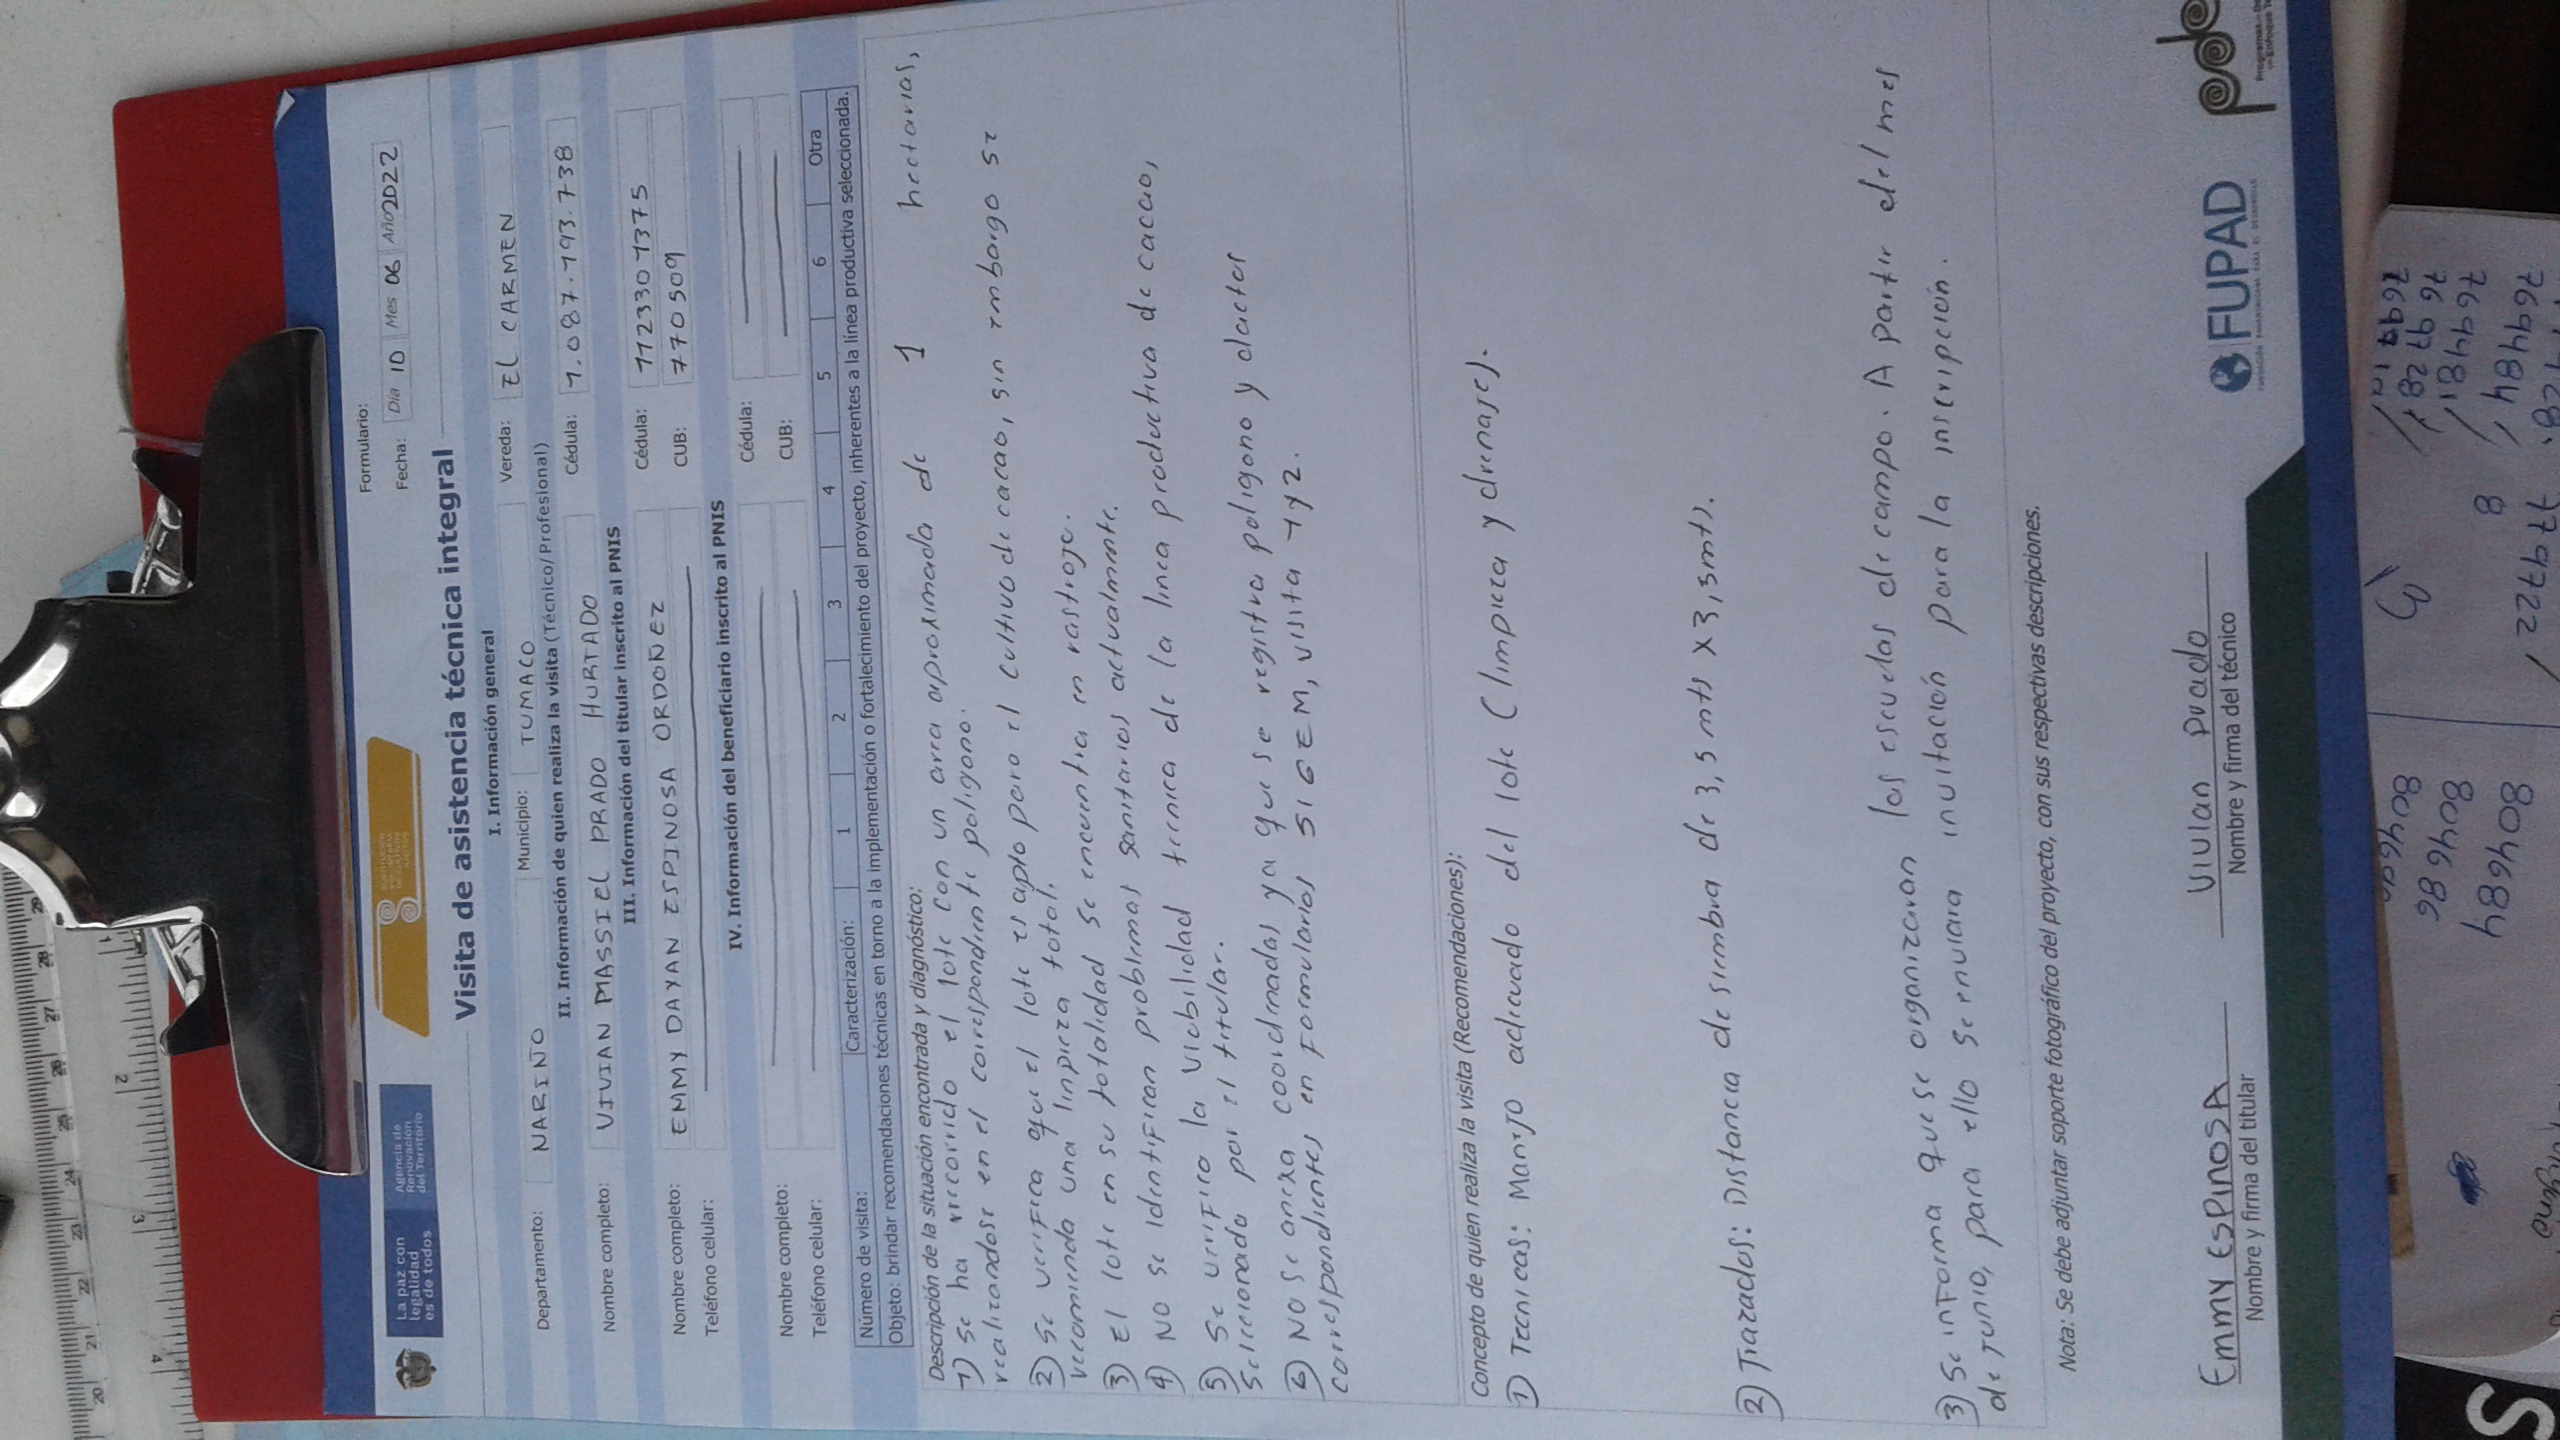 La paz con
legalidad
es de todos
Agencia de
Renovación
del Territorio
Formulario:
Fecha: Día 10 Mes 06 Año 2022
Visita de asistencia técnica integral
I. Información general
Departamento: NARIÑO Municipio: TUMACO Vereda: El CARMEN
II. Información de quien realiza la visita (Técnico/Profesional)
Nombre completo: VIVIAN MASSIEL PRADO HURTADO Cédula: 1.087.193.738
III. Información del titular inscrito al PNIS
Nombre completo: EMMY DAYAN ESPINOSA ORDOÑEZ Cédula: 1123301375
Teléfono celular: CUB: 770509
IV. Información del beneficiario inscrito al PNIS
Nombre completo: Cédula:
Teléfono celular: CUB:
Número de visita: Caracterización: 1 2 3 4 5 6 Otra
Objeto: brindar recomendaciones técnicas en torno a la implementación o fortalecimiento del proyecto, inherentes a la línea productiva seleccionada.
Descripción de la situación encontrada y diagnóstico:
1) Se ha recorrido el lote con un area aproximada de 1 hectarias,
realizandose en el correspondiente poligono.
2) Se verifica que el lote es apto para el cultivo de cacao, sin embargo se
recomienda una limpieza total.
3) El lote en su totalidad se encuentra en rastrojo.
4) NO se identifican problemas sanitarios actualmente.
5) Se verifico la viabilidad tecnica de la linea productiva de cacao,
Seleccionada por el titular.
6) NO se anexa coordenadas ya que se registra poligono y dactos
correspondientes en formularios SIGEM, visita 1y2.
Concepto de quien realiza la visita (Recomendaciones):
1) Tecnicas: Manejo adecuado del lote (limpieza y drenajes).
2) Trazados: Distancia de simbra de 3,5 mts x3,5mts.
3) Se informa que se organizaran las escuelas de campo. A partir del mes
de Junio, para ello se enviara invitación para la inscripción.
Nota: Se debe adjuntar soporte fotográfico del proyecto, con sus respectivas descripciones.
Emmy Espinosa
Nombre y firma del titular
Vivian Prado
Nombre y firma del técnico
FUPAD
804686
804684
769728
769481
769484
771722
8